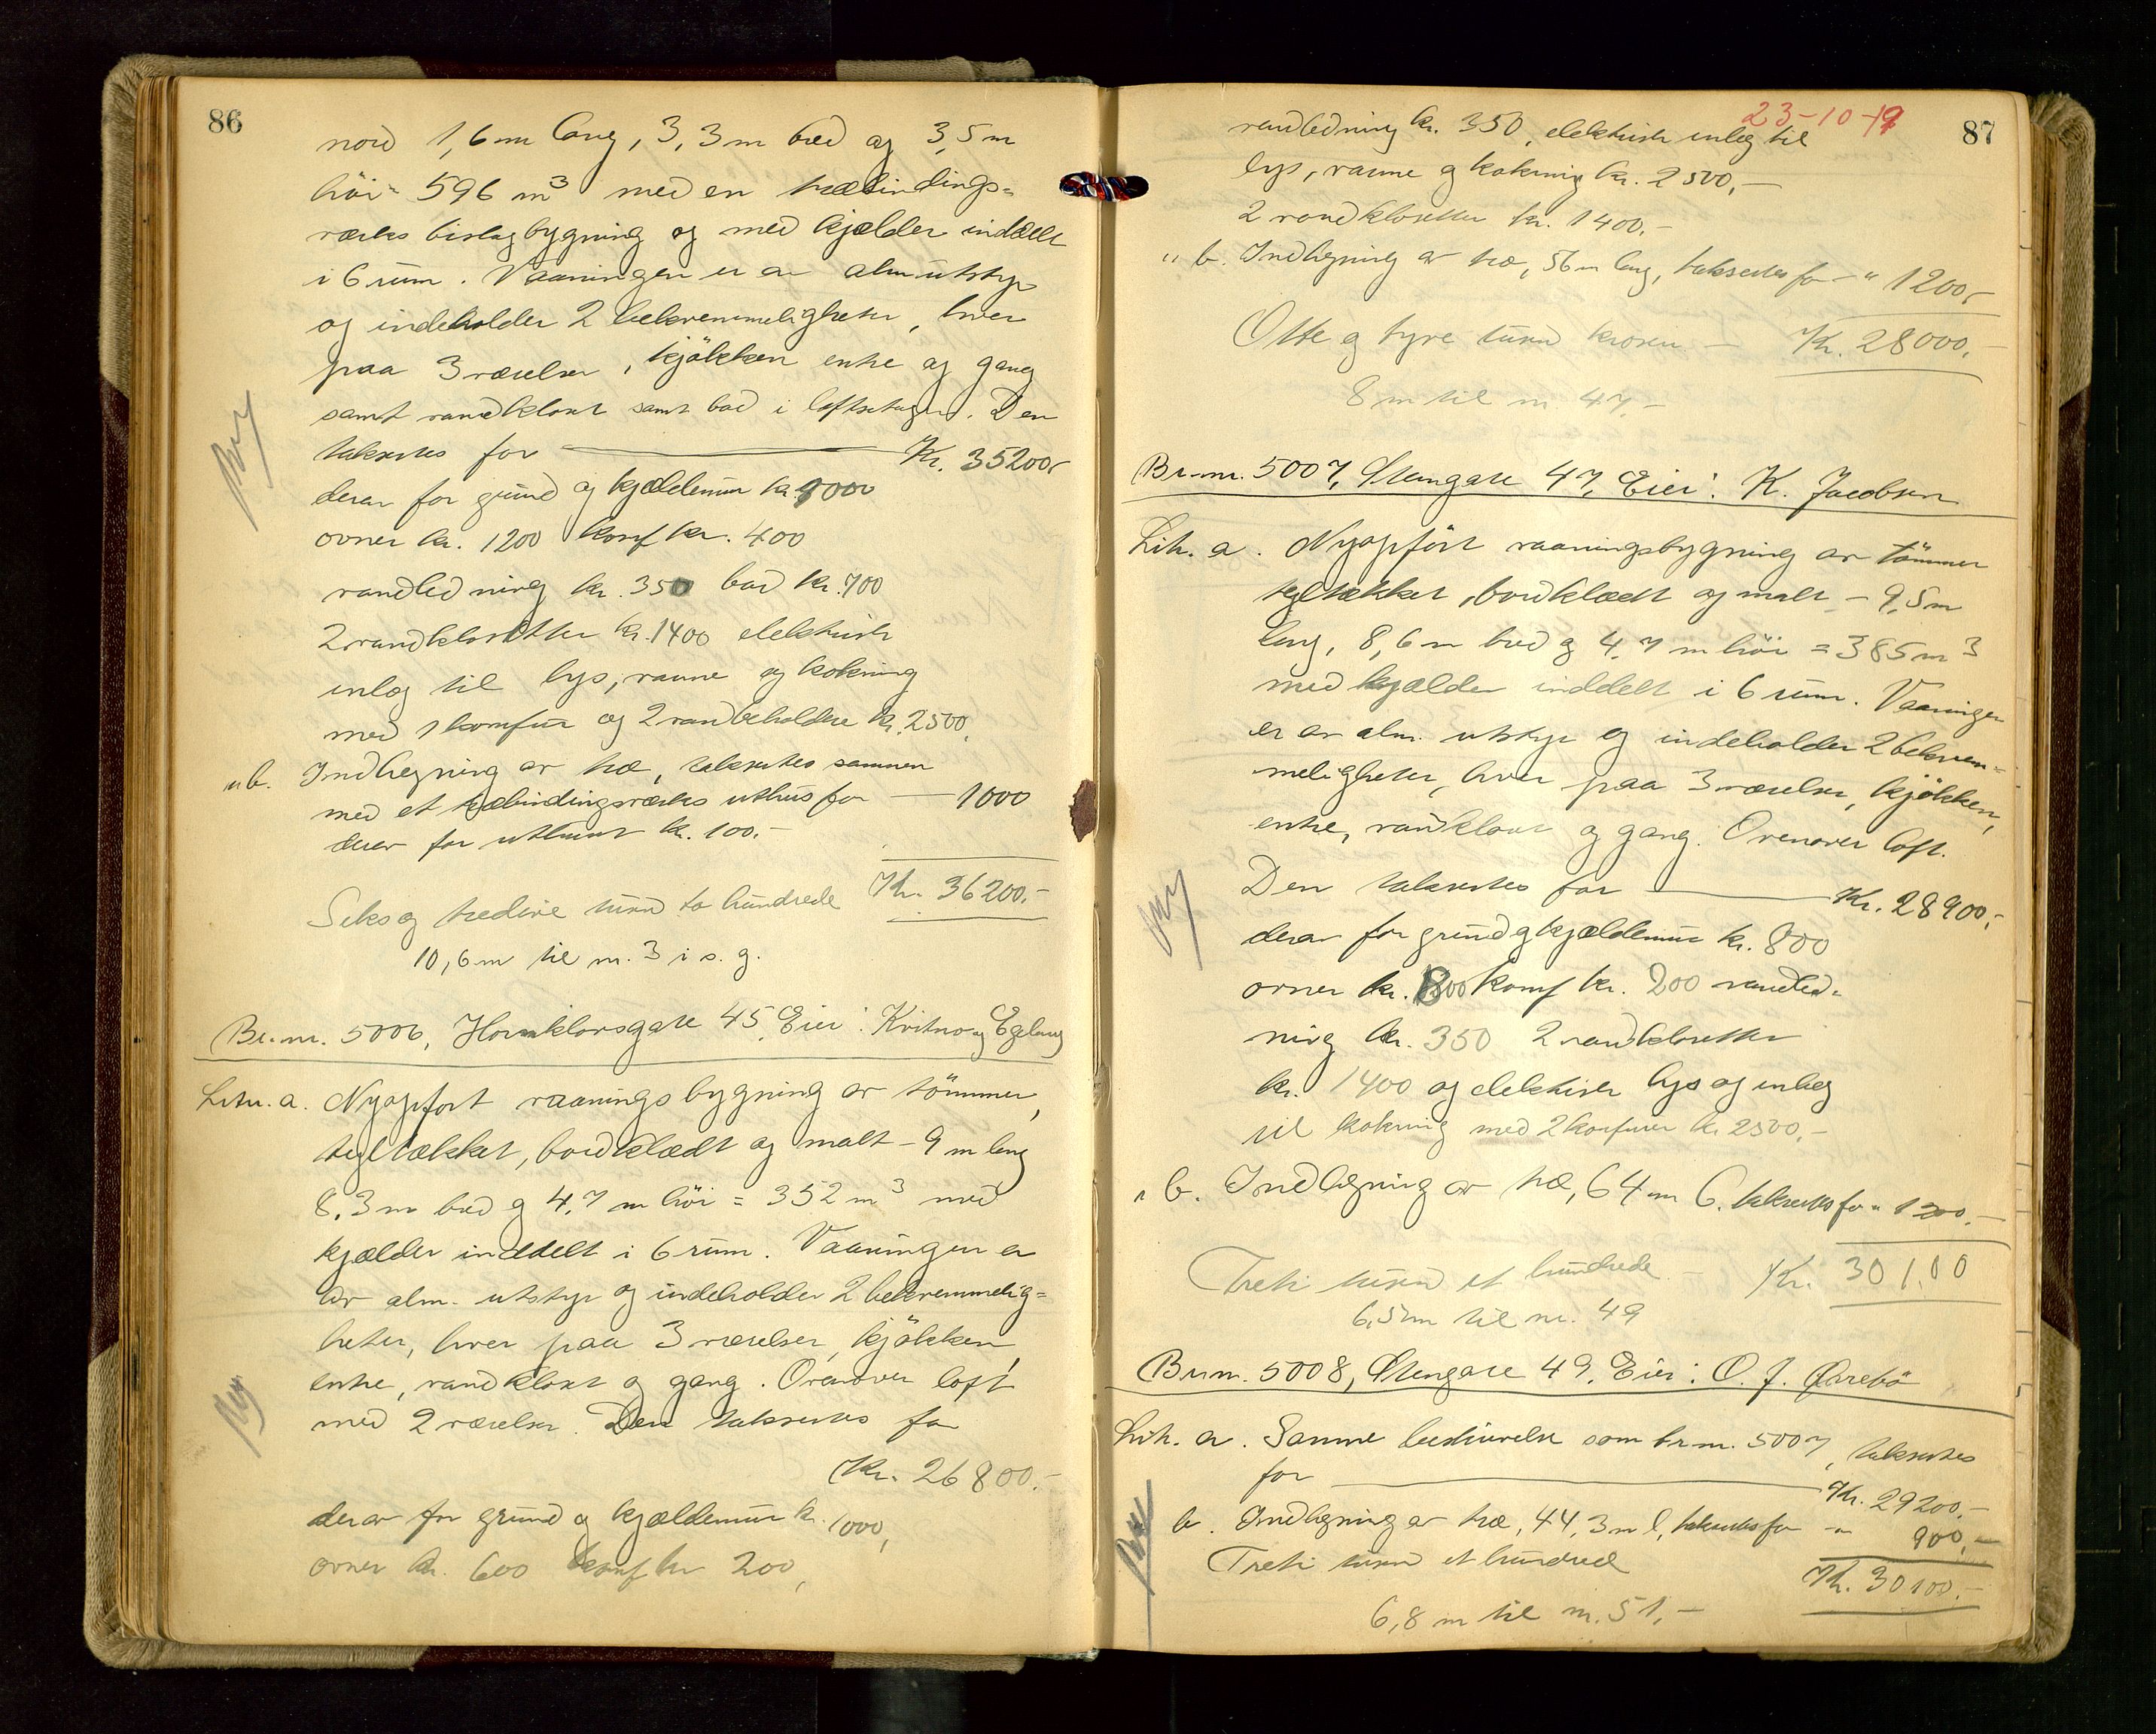 86
nord 1,6 m lang, 3,3 m bred og 3,5 m
höi = 596 m³ med en træbindings=
verks bislagbygning og med kjelder inddelt
i 6 rum. Vaaningen er av alm utstyr
og indeholder 2 bekvemmeligheter, hver
paa 3 værelser, kjökken entre og gang
samt vandklost samt bad i loftsetagen. Den
taksertes for Kr. 35200,-
derav for grund og kjeldemur kr. 1000
ovner kr. 1200 komf kr. 400
vandledning kr. 350 bad kr. 700
2 vandklosetter kr. 1400 elektrisk
inlæg til lys, varme og kokning
med 1 komfur og 2 vandbeholdere kr. 2500,
" b. Indhegning av træ, taksertes sammen
med et træbindingsverks uthus for — 1000
derav for uthuset kr. 100.-
Kr. 36200.-
Seks og tredive tusen to hundrede
10,6 m til nr. 3 i s. g.
Br.nr. 5006, Hornklovsgate 45, Eier: Kvitno og Egeland
Ny
Litr. a. Nyopført vaaningsbygning av tömmer,
tegltækket, bordklædt og malt - 9 m lang
8,3 m bred og 4,7 m höi = 352 m³ med
kjælder inddelt i 6 rum. Vaaningen er
av alm. utstyr og indeholder 2 bekvemmelig=
heter, hver paa 3 værelser, kjökken,
entre, vandklost og gang. Ovenover loft
med 2 værelser. Den taksertes for
Kr. 26800.-
derav for grund og kjældemur kr. 1000,
ovner kr. 600 komf kr 200,
Ny
23-10-19
87
vandledning kr. 350, elektrisk inlæg til
lys, varme og kokning kr. 2500,-
2 vandklosetter kr. 1400.-
" b. Indhegning av træ, 56 m lang, taksertes for - " 1200,-
Otte og tyve tusen kroner - Kr. 28000.-
8 m til nr 47.-
Br.nr. 5007, Stengate 47, Eier: K. Jacobsen
Lit. a. Nyopført vaaningsbygning av tömmer
tegltækket, bordklædt og malt - 9,5 m
lang, 8,6 m bred og 4,7 m höi = 385 m³
med kjælder inddelt i 6 rum. Vaaningen
er av alm. utstyr og indeholder 2 bekvem=
meligheter, hver paa 3 værelser, kjökken,
entre, vandklost og gang. Ovenover loft.
Den taksertes for Kr. 28900,-
derav for grund og kjældemur kr. 800
ovner kr. 800 komf kr. 200 vandled=
ning kr. 350 2 vandklosetter
kr. 1400 og elektrisk lys og inlæg
til kokning med 2 komfurer kr 2500,-
Ny
" b. Indhegning av træ, 64 m l. taksertes for " 1200.-
Treti tusen et hundrede - Kr. 30100
6,5 m til nr. 49
Br.nr. 5008, Stengate 49, Eier: O. J. Øvrebö
Lit. a. Samme beskrivelse som br.nr. 5007, taksertes
for Kr. 29200.-
b. Indhegning av træ, 44,3 m l, taksertes for - " 900,-
Treti tusen et hundred Kr. 30100.-
6,8 m til nr. 51.-